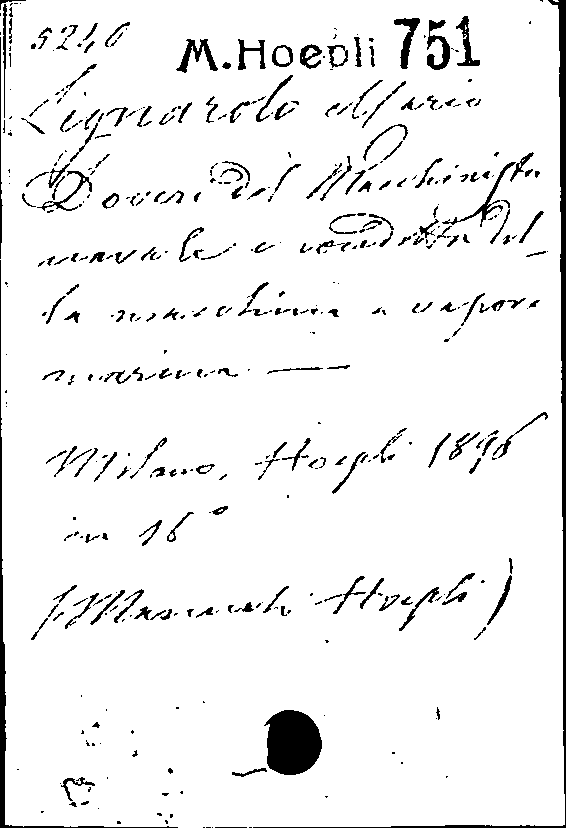 5246 M. Hoepli 751
Lignarolo Mario
Doveri del Macchinista
navale e condotta del-
la macchina a vapore
marina —
Milano, Hoepli 1896
in 16°
(Manuali Hoepli)